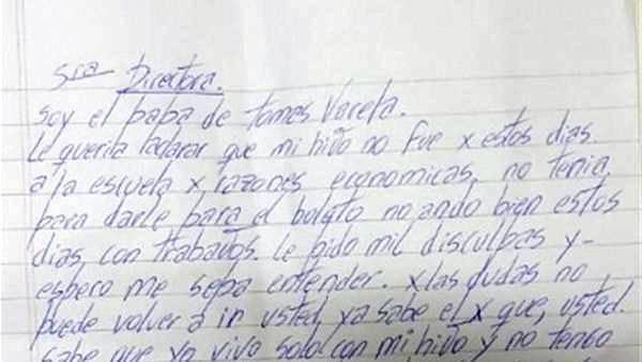 Sra Directora.
Soy el papa de tomas Varela.
Le queria aclarar que mi hijo no fue x estos dias
a la escuela x razones economicas. no tenia
para darle para el boleto no ando bien estos
dias, con trabajos. le pido mil disculpas y-
espero me sepa entender. x las dudas no
puede volver a ir usted, ya sabe el x que, usted.
sabe que yo vivo solo con mi hijo y no tengo